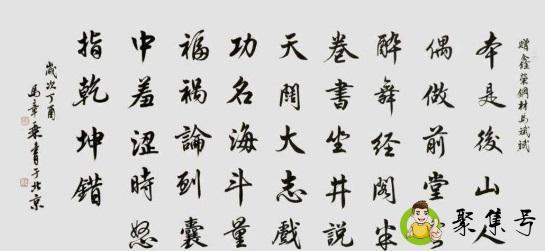 贈鑫榮鋼材馬斌斌
本是後山人
偶做前堂
醉舞經閣半
巻書坐井説
天闊大志戲
功名海斗量
福禍論到囊
中羞澀時怒
指乾坤錯
歲次丁酉
馬章乘書于北京
聚集号